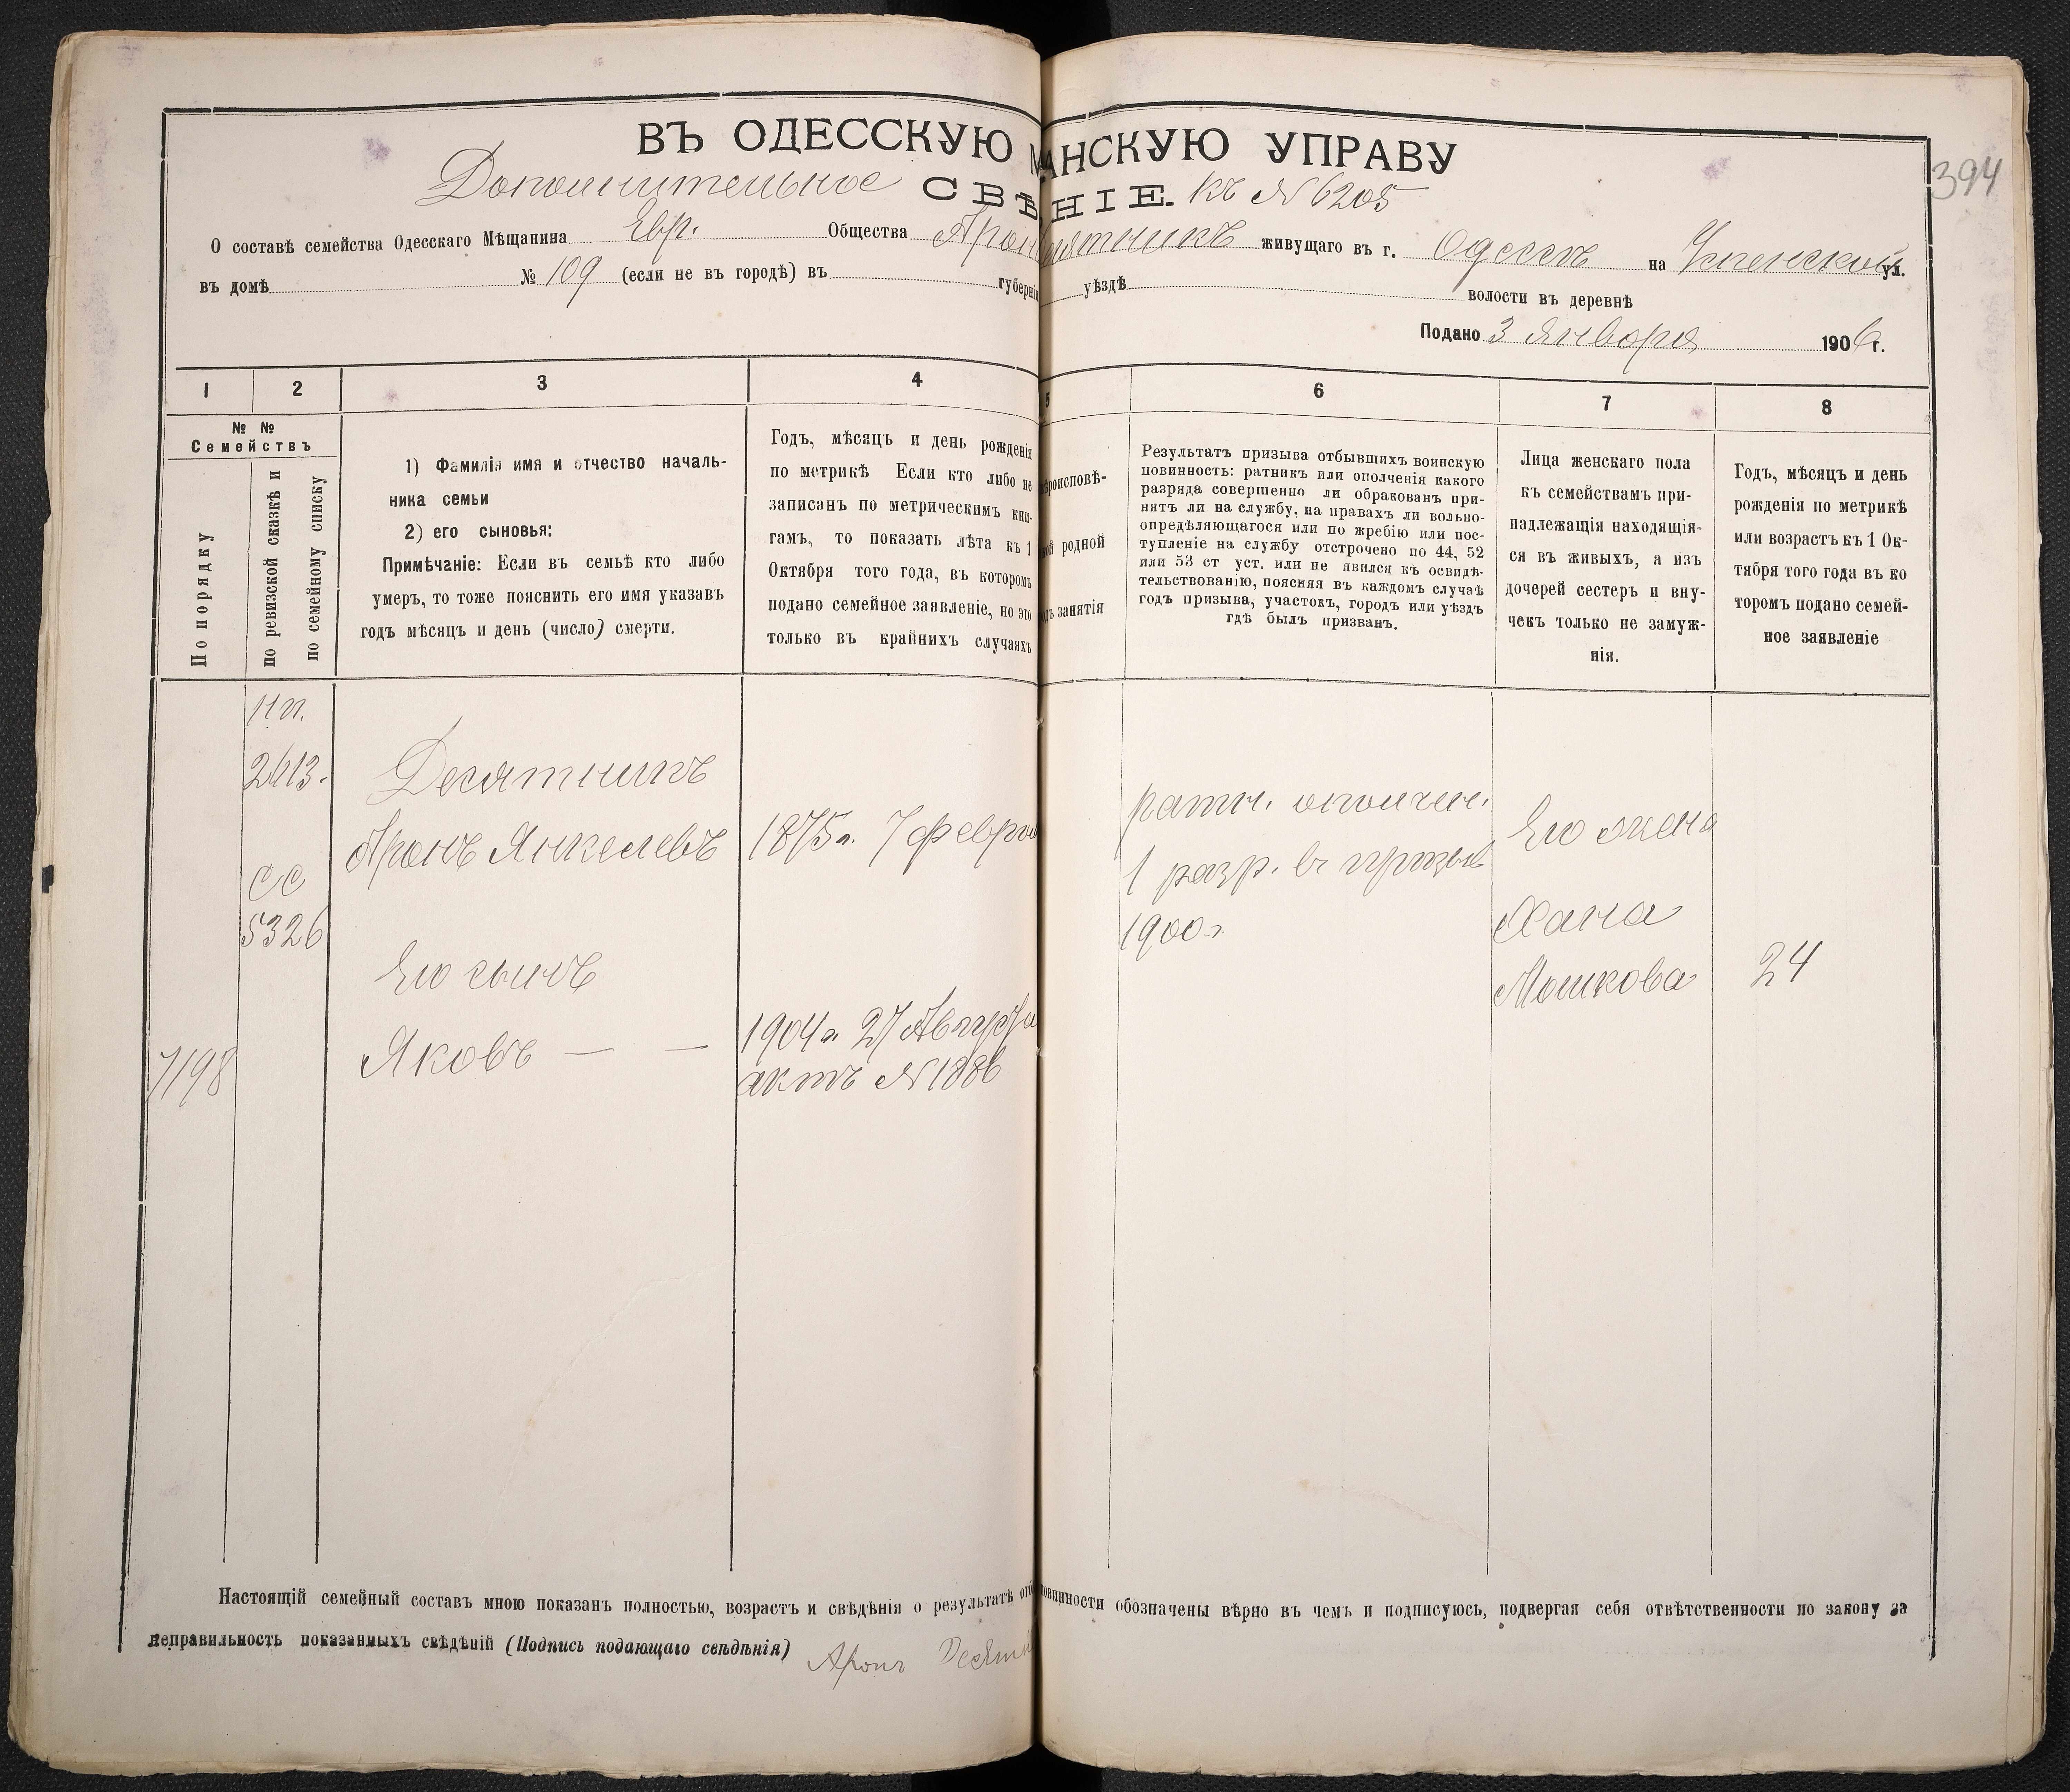 ВЪ ОДЕССКУЮ МѢЩАНСКУЮ УПРАВУ
394
Дополнительное СВѢДѢНІЕ. къ № 6205
О составѣ семейства Одесскаго Мѣщанина Евр. Общества Аронъ Десятникъ живущаго въ г. Одессѣ на Успенской ул.
въ домѣ № 109 (если не въ городѣ) въ губерніи уѣздѣ волости въ деревнѣ
Подано 3 Января 1906 г.
1 2 3 4 5 6 7 8
№ №
Семействъ
По порядку
по ревизской сказкѣ и
по семейному списку
1) Фамилія имя и отчество началь-
ника семьи
2) его сыновья:
Примѣчаніе: Если въ семьѣ кто либо
умеръ, то тоже пояснить его имя указавъ
годъ мѣсяцъ и день (число) смерти.
Годъ, мѣсяцъ и день рожденія
по метрикѣ Если кто либо не
записанъ по метрическимъ кни-
гамъ, то показать лѣта къ 1
Октября того года, въ которомъ
подано семейное заявленіе, но это
только въ крайнихъ случаяхъ
роисповѣ-
родной
занятія
Результатъ призыва отбывшихъ воинскую
повинность: ратникъ или ополченія какого
разряда совершенно ли обракованъ при-
нятъ ли на службу, на правахъ ли вольно-
опредѣляющагося или по жребію или пос-
тупленіе на службу отстрочено по 44, 52
или 53 ст уст. или не явился къ освидѣ-
тельствованію, поясняя въ каждомъ случаѣ
годъ призыва, участокъ, городъ или уѣздъ
гдѣ былъ призванъ.
Лица женскаго пола
къ семействамъ при-
надлежащія находящія-
ся въ живыхъ, а изъ
дочерей сестеръ и вну-
чекъ только не замуж-
нія.
Годъ, мѣсяцъ и день
рожденія по метрикѣ
или возрастъ къ 1 Ок-
тября того года въ ко
торомъ подано семей-
ное заявленіе
2613.
СС
5326
7198
Десятникъ
Аронъ Янкелевъ
Его сынъ
Яковъ — —
1875 г. 7 Февра
1904 г. 27 Августа
актъ № 1886
ратн. ополчен.
1 разр. въ призывъ
1900 г.
Его жена
Хана
Мошкова
24
Настоящій семейный составъ мною показанъ полностью, возрастъ и свѣдѣнія о результатѣ отб повинности обозначены вѣрно въ чемъ и подписуюсь, подвергая себя отвѣтственности по закону за
неправильность показанныхъ свѣдѣній (Подпись подающаго свѣдѣнія) Аронъ Десятн